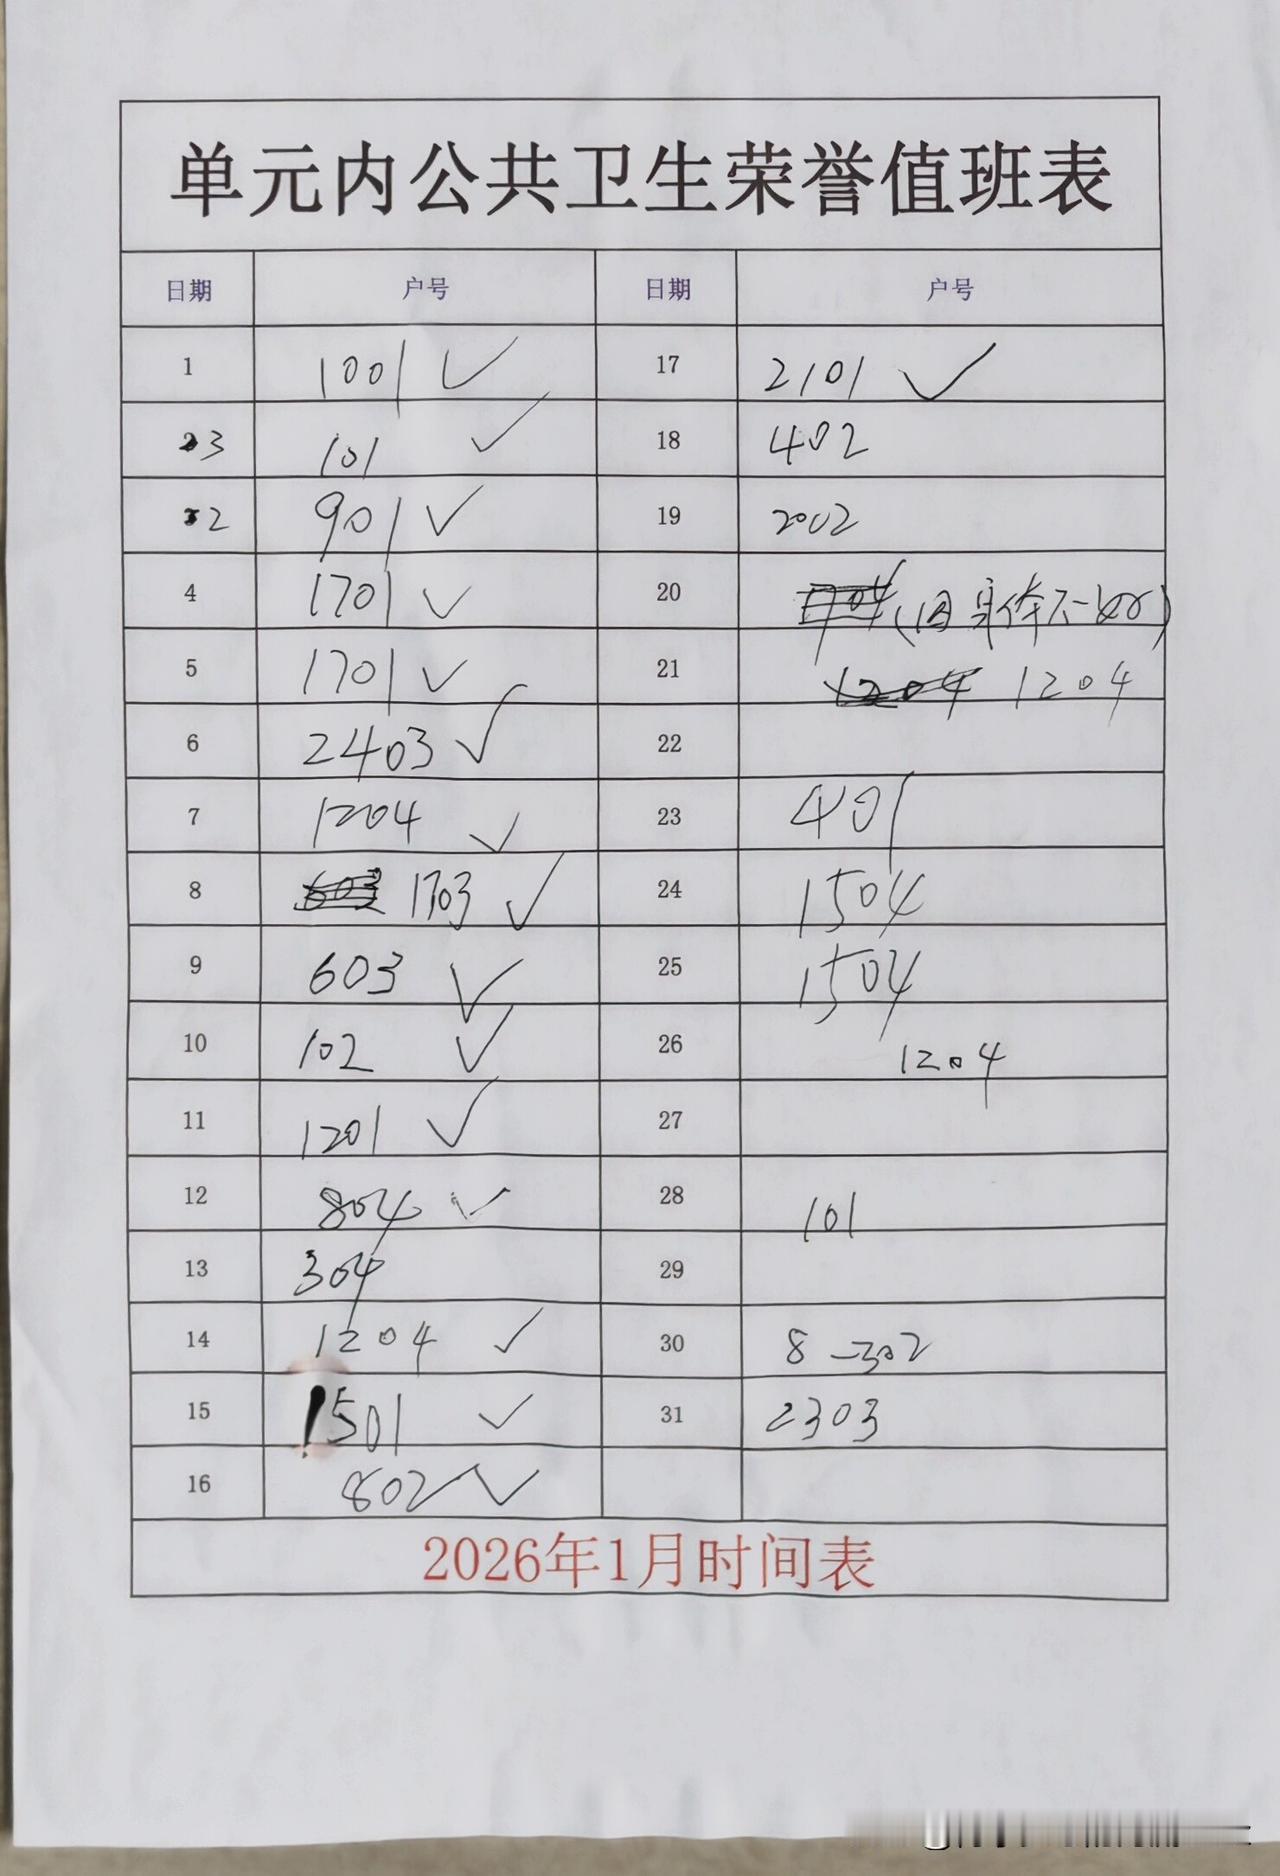 单元内公共卫生荣誉值班表
日期 户号 日期 户号
1 1001 ✓ 17 2101 ✓
3 101 ✓ 18 402
2 901 ✓ 19 2002
4 1701 ✓ 20 (因身体不
5 1701 ✓ 21 1204 1204
6 2403 ✓ 22
7 1204 ✓ 23 401
8 603 1703 ✓ 24 1504
9 603 ✓ 25 1504
10 102 ✓ 26 1204
11 1201 ✓ 27
12 804 ✓ 28 101
13 304 29
14 1204 ✓ 30 8-302
15 1501 ✓ 31 2303
16 802 ✓
2026年1月时间表